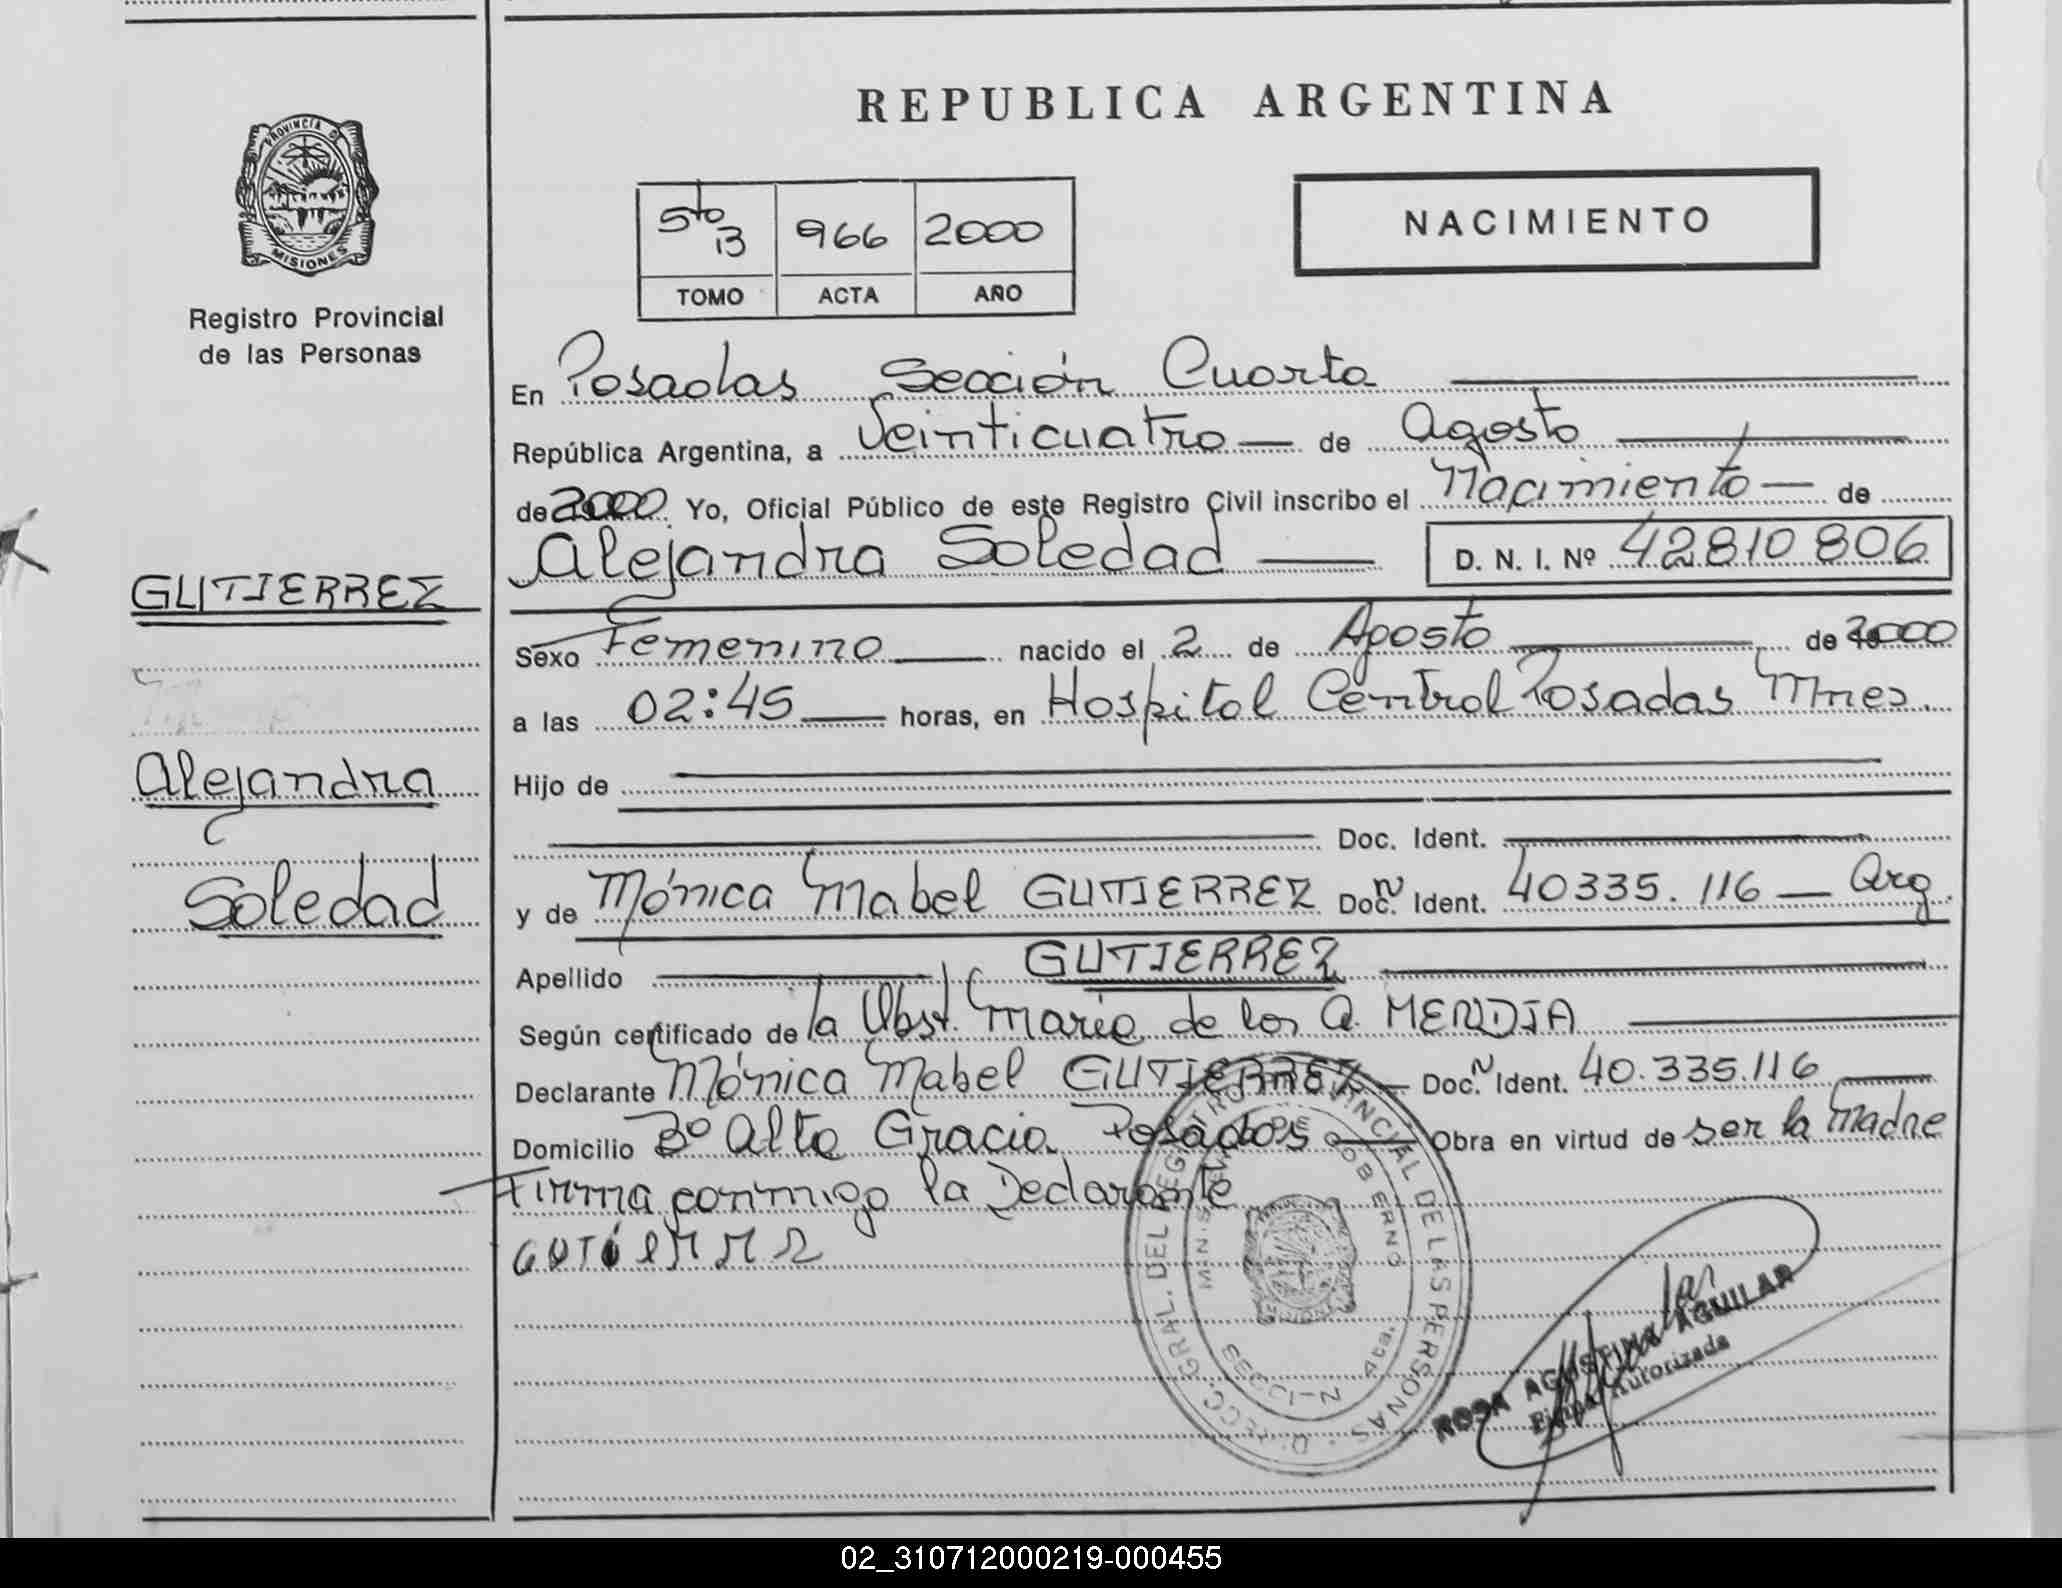 REPUBLICA ARGENTINA
PROVINCIA DE
MISIONES
Registro Provincial
de las Personas
5to 13 966 2000
TOMO ACTA AÑO
NACIMIENTO
En Posadas Sección Cuarta
República Argentina, a Veinticuatro de Agosto
de 2000 Yo, Oficial Público de este Registro Civil inscribo el Nacimiento de
Alejandra Soledad D. N. I. Nº 42810806
GUTIERREZ
Sexo Femenino nacido el 2 de Agosto de 2000
a las 02:45 horas, en Hospital Central Posadas Mnes.
Alejandra
Soledad
Hijo de
Doc. Ident.
y de Mónica Mabel GUTIERREZ Doc. N Ident. 40335.116 Arg.
Apellido GUTIERREZ
Según certificado de la Obst. María de los A. MENDIA
Declarante Mónica Mabel GUTIERREZ Doc. N Ident. 40.335.116
Domicilio Bº Alta Gracia Posadas Obra en virtud de ser la Madre
Firma conmigo la Declarante
DIRECC. GRAL. DEL REGISTRO PROVINCIAL DE LAS PERSONAS
MINISTERIO DE GOBIERNO
SECCION 4ta.
ROSA AGUSTINA AGUILAR
Firma Autorizada
02_310712000219-000455